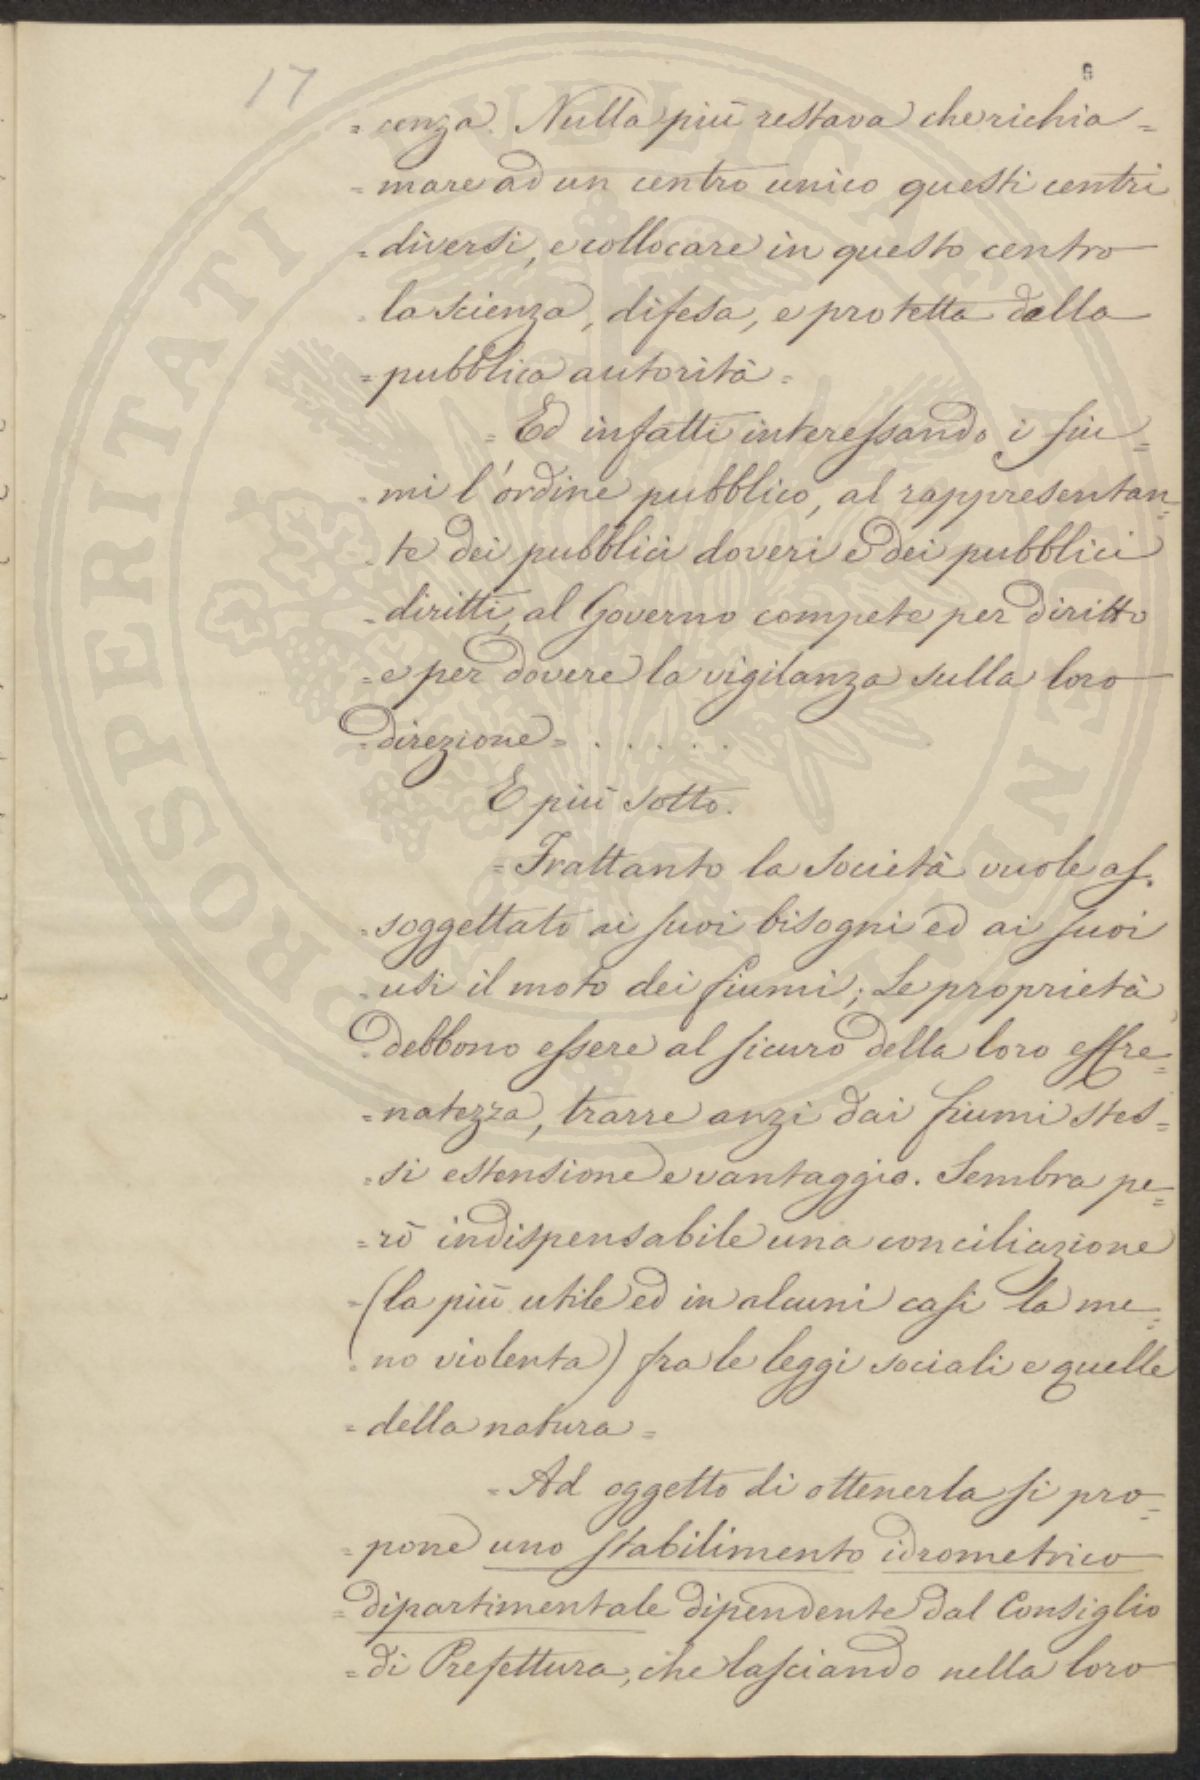 17
= cenza. Nulla più restava che richia =
= mare ad un centro unico questi centri
= diversi, e collocare in questo centro
= la scienza, difesa, e protetta dalla
= pubblica autorità =
= Ed infatti interessando i fiu =
= mi l'ordine pubblico, al rappresentan =
= te dei pubblici doveri e dei pubblici
= diritti, al Governo compete per diritto
= e per dovere la vigilanza sulla loro
= direzione = . . . . .
E più sotto.
= Frattanto la Società vuole as =
= soggettato ai suoi bisogni ed ai suoi
= usi il moto dei fiumi; Le proprietà
= debbono essere al sicuro della loro effre =
= natezza, trarre anzi dai fiumi stes =
= si estensione e vantaggio. Sembra pe =
= rò indispensabile una conciliazione
= (la più utile ed in alcuni casi la me =
= no violenta) fra le leggi sociali e quelle
= della natura =
= Ad oggetto di ottenerla si pro =
= pone uno stabilimento idrometrico
= dipartimentale dipendente dal Consiglio
= di Prefettura, che lasciando nella loro
PROSPERITATI PVBLICAE AVGENDAE